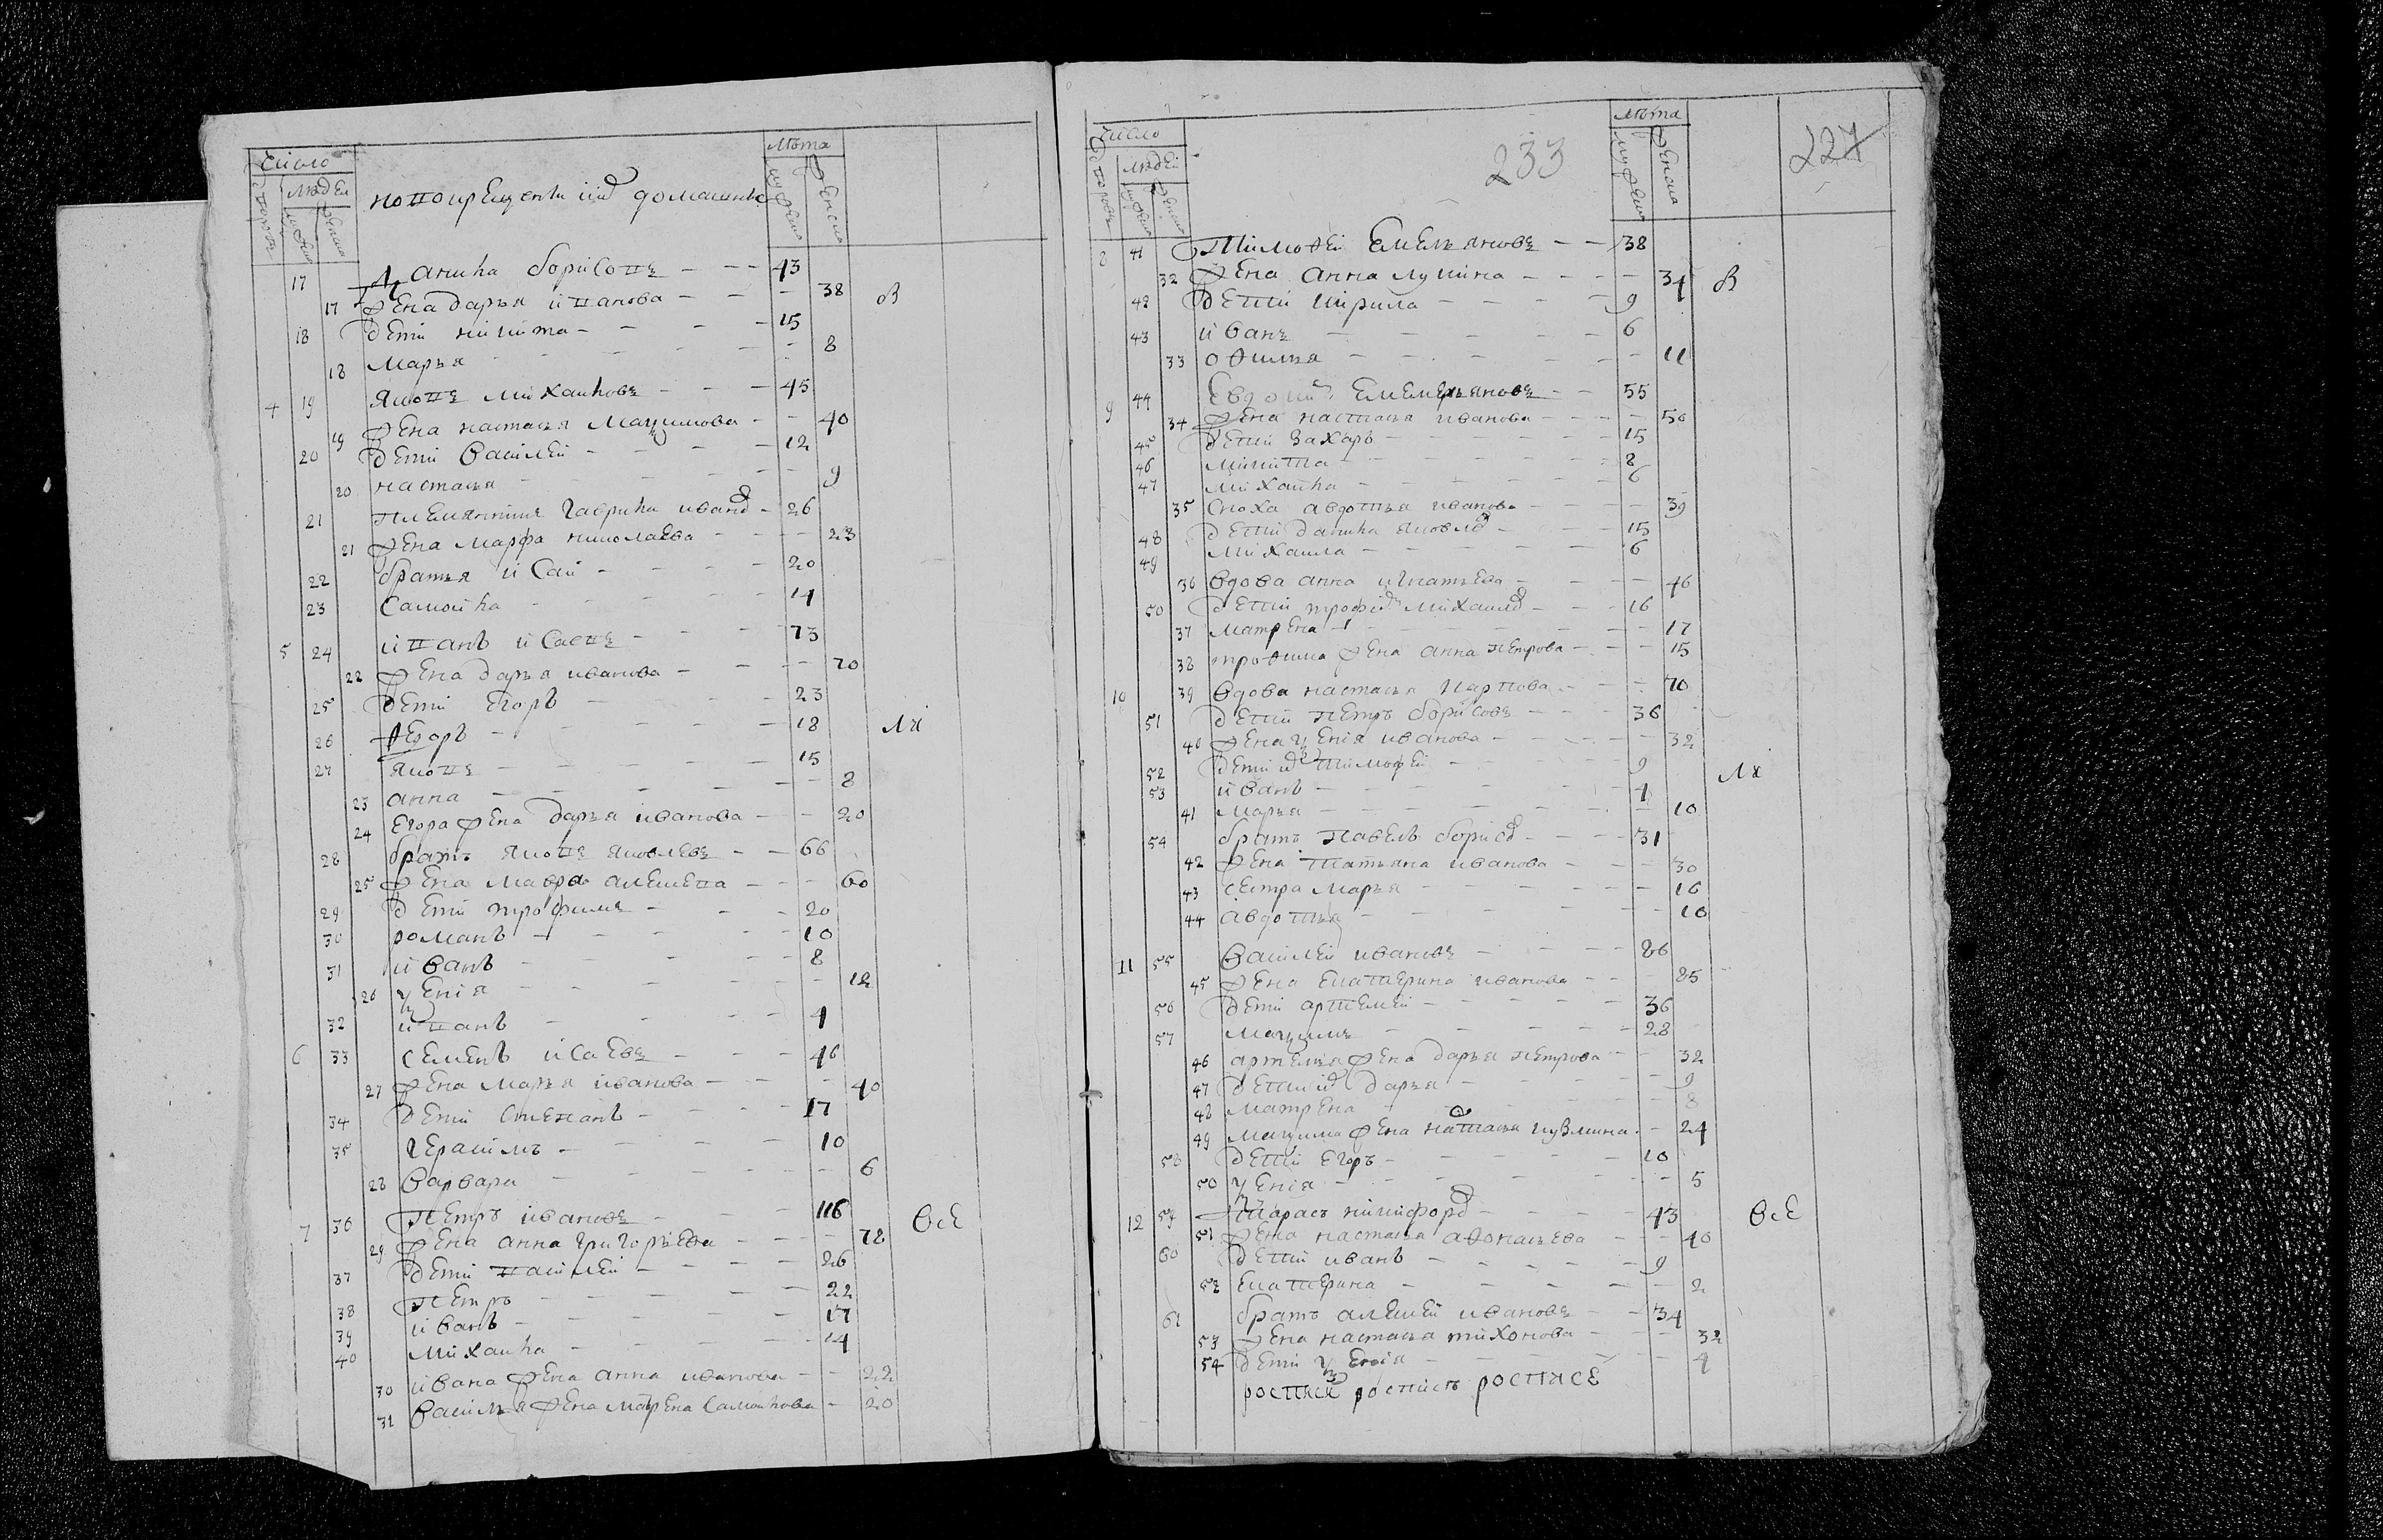 число
людеи
лѣта
новокрещены и ихъ домашніе
17 Данила борисовъ 43
17 жена дарья иванова 38
в
18 дети никита 15
18 марья 8
4 19 яковъ михаиловъ 45
19 жена настасья маѯимова 40
20 дети василеи 12
20 настасья 9
21 племянникъ гаврила иванов 26
21 жена марфа николаева 23
22 братья исаи 20
23 самоила 14
5 24 иванъ исаевъ 73
22 жена дарья иванова 70
25 дети егоръ 23
26 ѳедоръ 18
ля
27 яковъ 15
23 анна 8
24 егора жена дарья иванова 20
28 братъ яковъ яковлевъ 66
25 жена мавра алеѯеева 60
29 дети трофимъ 20
30 романъ 10
31 иванъ 8
26 ѯения 12
32 иванъ 4
6 33 семенъ исаевъ 46
27 жена марья иванова 40
34 дети степанъ 17
35 герасимъ 10
28 варвара 6
7 36 петръ ивановъ
все
29 жена анна григорьева 72
37 дети василеи 26
38 петръ 22
39 иванъ 17
40 михаила 14
30 ивана жена анна иванова 22
31 василья жена матрена самоилова 20
число
людеи
233
лѣта
227
8 41 Тимоѳеи емельяновъ 38
32 жена анна лукина 34
в
42 дети кирила 9
43 иванъ 6
33 оѳимья 11
9 44 Евдоким емельяновъ 55
34 жена настасья иванова 50
45 дети захаръ 15
46 никита 8
47 михаила 6
35 сноха авдотья иванова 39
48 дети данила яковлев 15
49 михаила 6
36 вдова анна игнатьева 46
50 дети трофим михаилов 16
37 матрена 17
38 троѳима жена анна петрова 15
10 39 вдова настасья карпова 70
51 дети петръ борисовъ 36
40 жена ѯения иванова 32
52 дети их тимофеи 9
ля
53 иванъ 4
41 марья 10
54 братъ павелъ борисов 31
42 жена татьяна иванова 30
43 сестра марья 16
44 авдотья 10
11 55 василеи ивановъ 86
45 жена екатерина иванова 85
56 дети артемеи 36
57 маѯимъ 28
46 артемья жена дарья петрова 32
47 дети их дарья 9
48 матрена 8
49 маѯима жена наталья кузмина 24
58 дети егоръ 10
50 ѯения 5
12 59 тарасъ никифоров 43
все
51 жена настасья аѳонасьева 40
60 дети иванъ 9
52 екатерина 2
61 братъ алеѯеи ивановъ 34
53 жена настасья тихонова 32
54 дети ѯения 4
роспясе роспись роспясе